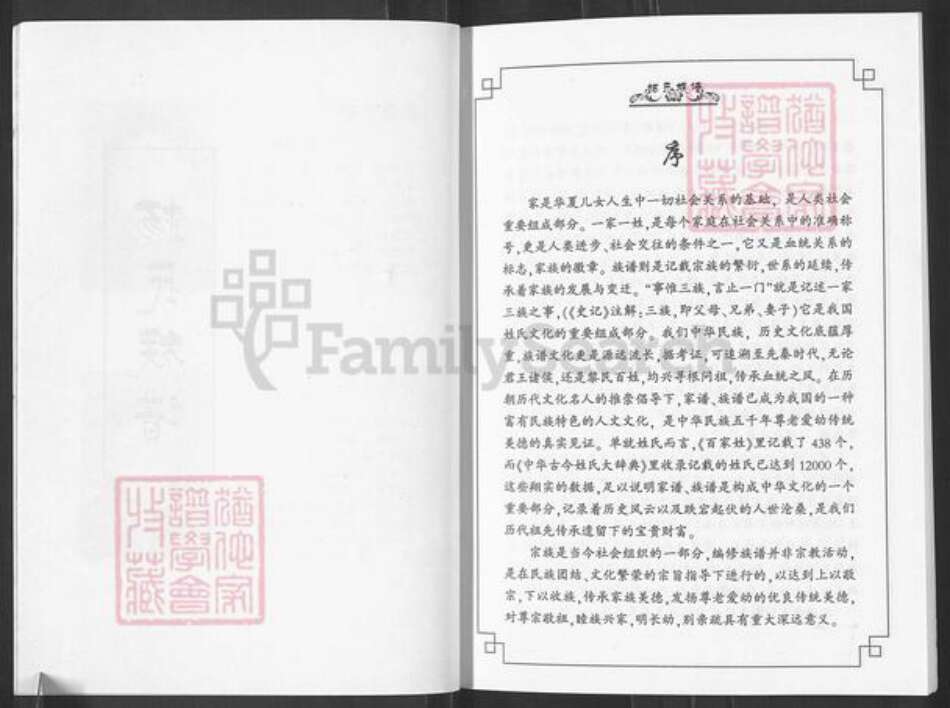 杨氏族谱
序
家是华夏儿女人生中一切社会关系的基础，是人类社会
重要组成部分。一家一姓，是每个家庭在社会关系中的准确称
号，更是人类进步、社会交往的条件之一，它又是血统关系的
标志，家族的徽章。族谱则是记载宗族的繁衍，世系的延续，传
承着家族的发展与变迁。“事惟三族，言止一门”就是记述一家
三族之事，（《史记》注解：三族，即父母、兄弟、妻子）它是我国
姓氏文化的重要组成部分。我们中华民族，历史文化底蕴厚
重，族谱文化更是源远流长，据考证，可追溯至先秦时代，无论
君王诸侯，还是黎民百姓，均兴寻根问祖，传承血统之风。在历
朝历代文化名人的推崇倡导下，家谱、族谱已成为我国的一种
富有民族特色的人文文化，是中华民族五千年尊老爱幼传统
美德的真实见证。单就姓氏而言，《百家姓》里记载了 438 个，
而《中华古今姓氏大辞典》里收录记载的姓氏已达到 12000 个，
这些翔实的数据，足以说明家谱、族谱是构成中华文化的一个
重要部分，记录着历史风云以及跌宕起伏的人世沧桑，是我们
历代祖先传承遗留下的宝贵财富。
宗族是当今社会组织的一部分，编修族谱并非宗教活动，
是在民族团结、文化繁荣的宗旨指导下进行的，以达到上以敬
宗，下以收族，传承家族美德，发扬尊老爱幼的优良传统美德，
对尊宗敬祖，睦族兴家，明长幼，别亲疏具有重大深远意义。
FamilySearch
猶他家
譜學會
收藏
猶他家
譜學會
收藏